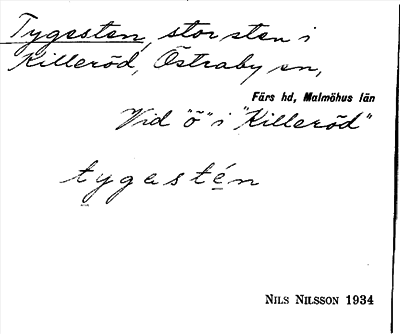 Tygesten, stor sten i
Killeröd, Östraby sn,
Färs hd, Malmöhus län
Vid "ö" i "Killeröd"
tygastén
Nils Nilsson 1934